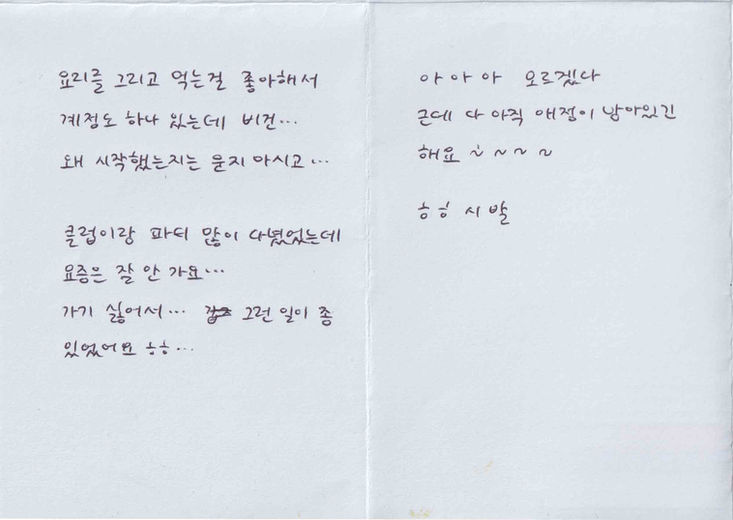 요리를 그리고 먹는걸 좋아해서
계정도 하나 있는데 비건...
왜 시작했는지는 묻지 마시고...
클럽이랑 파티 많이 다녔었는데
요즘은 잘 안 가요...
가기 싫어서... 그런 일이 좀
있었어요 ㅎㅎ...
아 아 아 모르겠다
근데 다 아직 애정이 남아있긴
해요 ~ ~ ~ ~
ㅎㅎ 시발